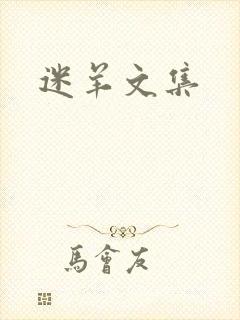 迷羊文集
馬會友